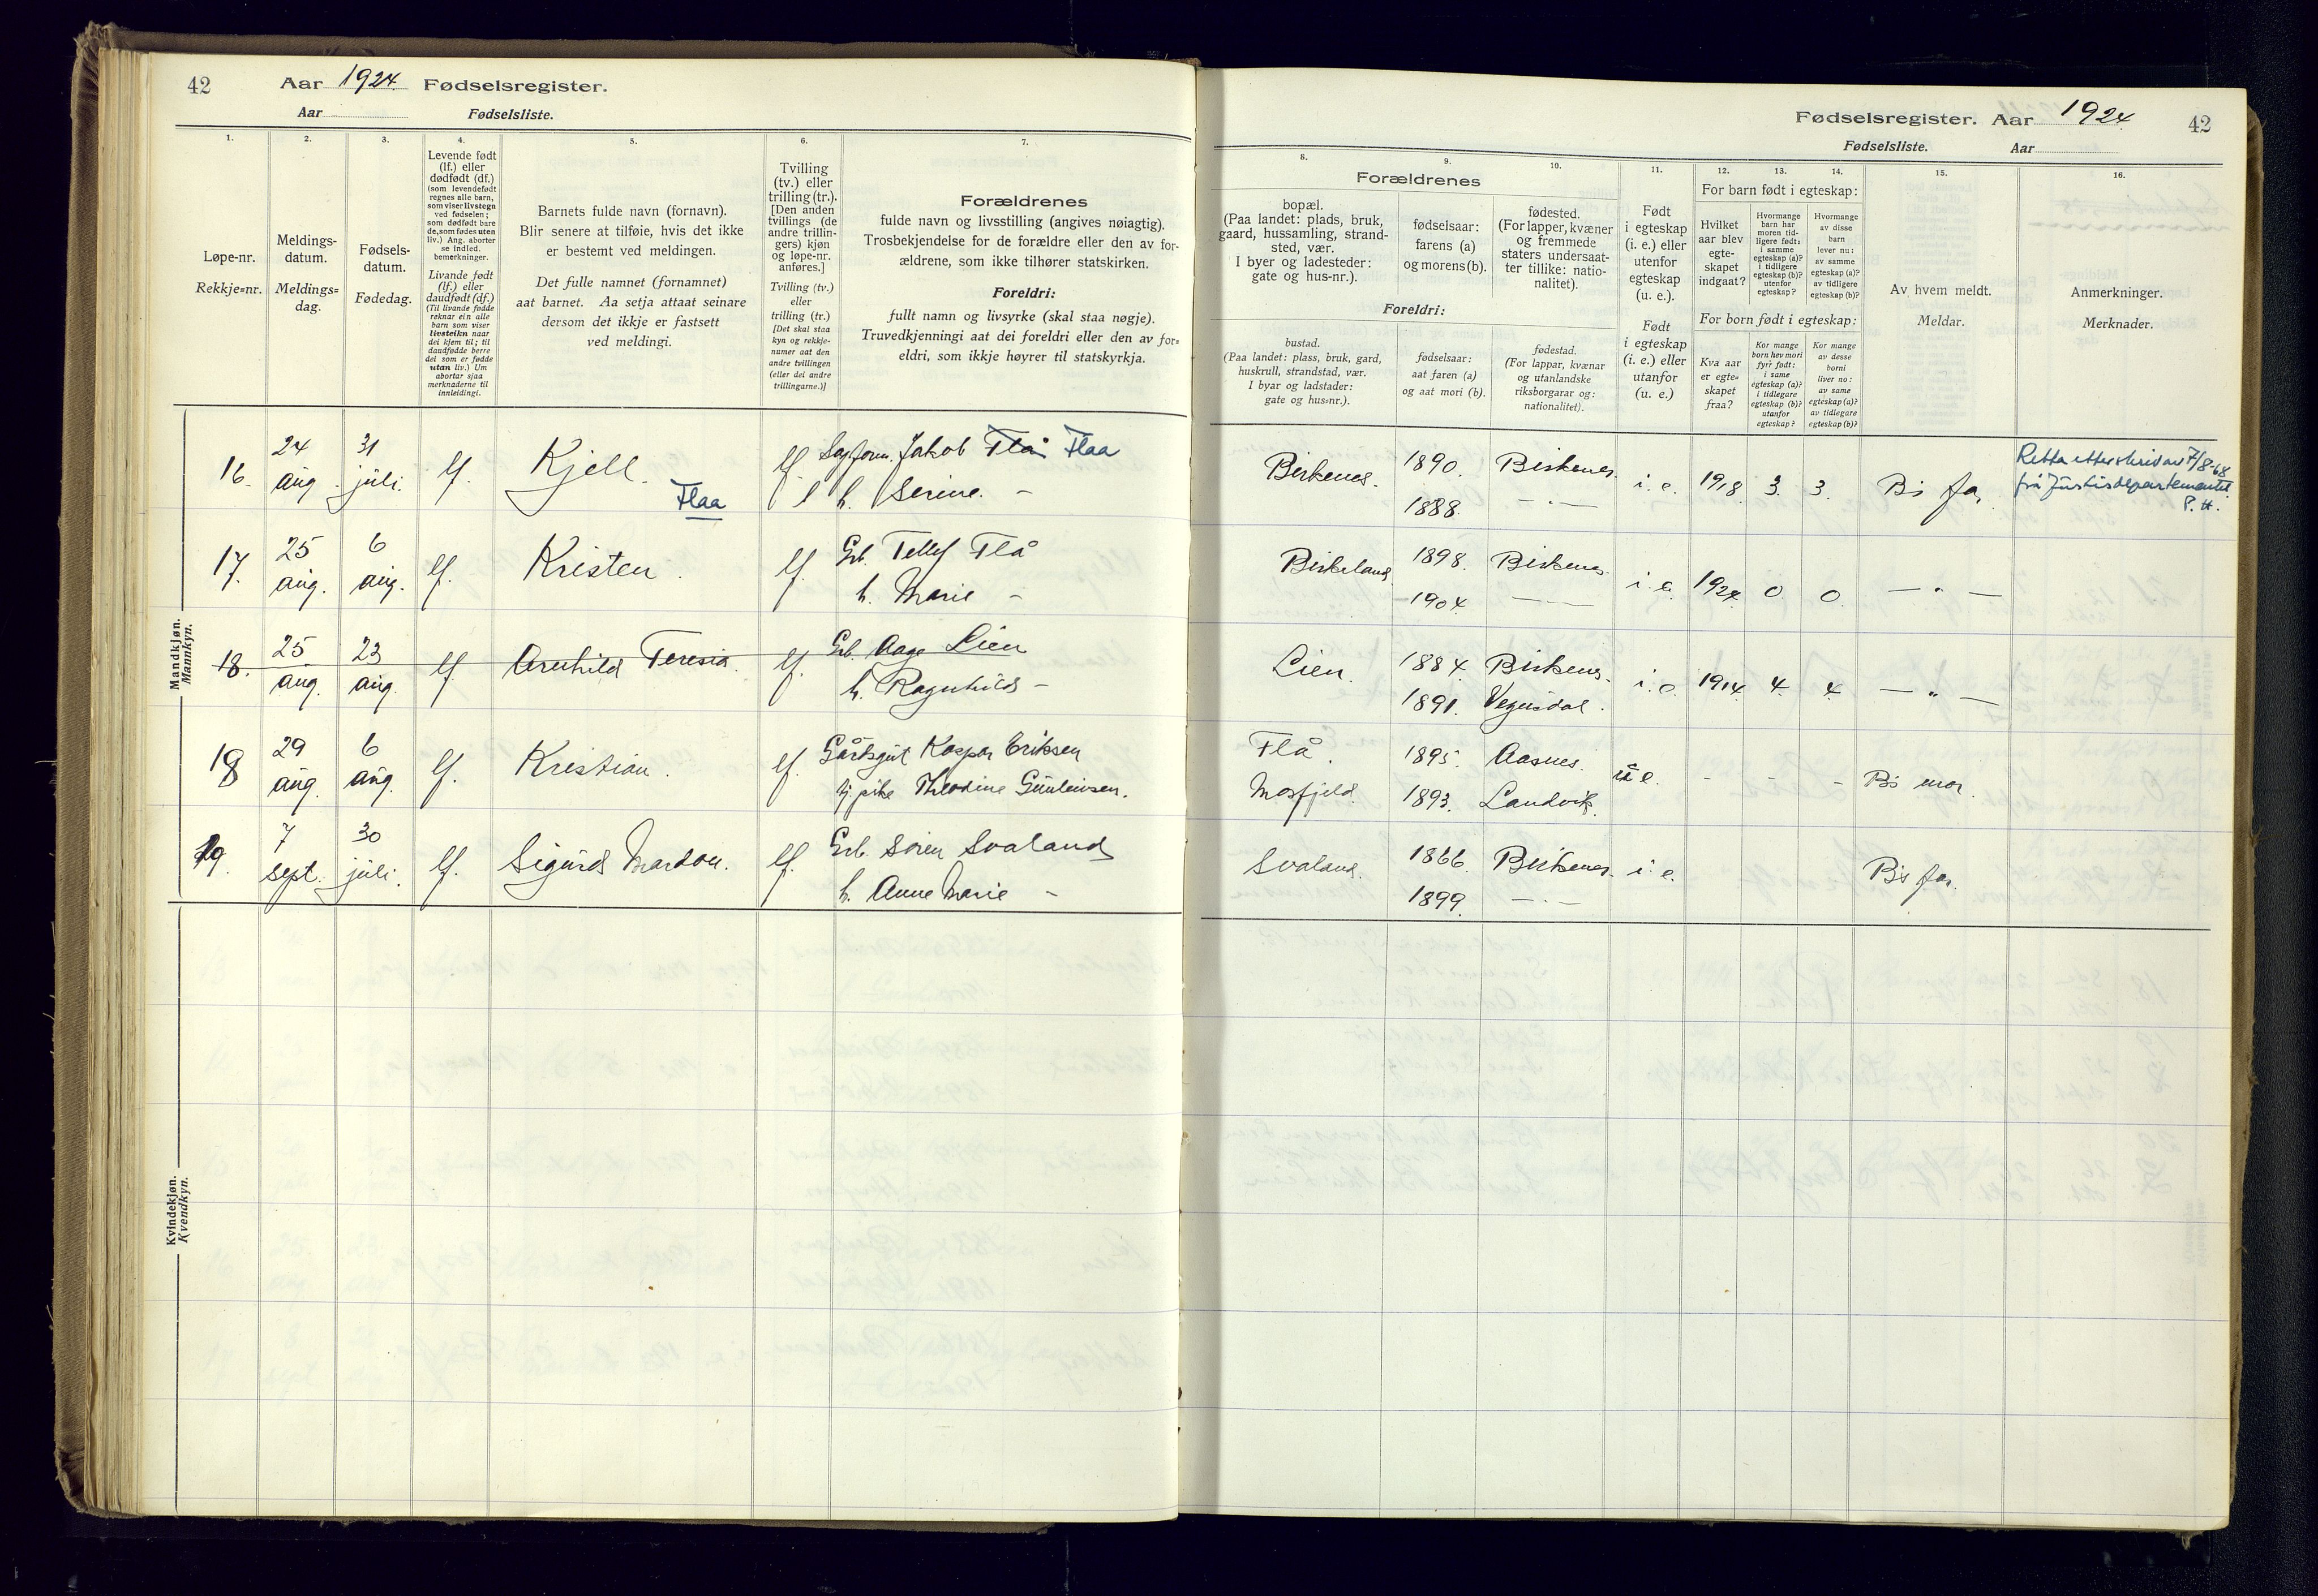 42
Aar 1924. Fødselsregister.
Aar Fødselsliste.
1.
Løpe-nr.
Rekkje=nr.
2.
Meldings-
datum.
Meldings=
dag.
3.
Fødsels-
datum.
Fødedag.
4.
Levende født
(lf.) eller
dødfødt (df.)
(som levendefødt
regnes alle barn,
som viser livstegn
ved fødselen;
som dødfødt bare
de, som fødes uten
liv.) Ang. aborter
se indled.
bemerkninger.
Livande født
(lf.) eller
daudfødt (df.)
(Til livande fødde
reknar ein alle
barn som viser
livsteikn naar
dei kjem til; til
daudfødde berre
dei som er fødde
utan liv.) Um
abortar sjaa
merknaderne til
innleidingi.
5.
Barnets fulde navn (fornavn).
Blir senere at tilføie, hvis det ikke
er bestemt ved meldingen.
Det fulle namnet (fornamnet)
aat barnet. Aa setja attaat seinare
dersom det ikkje er fastsett
ved meldingi.
6.
Tvilling
(tv.) eller
trilling (tr.).
[Den anden
tvillings (de
andre trillin-
gers) kjøn
og løpe-nr.
anføres.]
Tvilling (tv.)
eller
trilling (tr.)
[Det skal staa
kyn og rekkje-
numer aat den
andre tvillingen
(eller dei andre
trillingarne.)]
7.
Forældrenes
fulde navn og livsstilling (angives nøiagtig).
Trosbekjendelse for de forældre eller den av for-
ældrene, som ikke tilhører statskirken.
Foreldri:
fullt namn og livsyrke (skal staa nøgje).
Truvedkjenningi aat dei foreldri eller den av for=
eldri, som ikkje høyrer til statskyrkja.
Mandkjøn.
Mannkyn.
16. 24 aug. 31 juli. lf. Kjell Flaa lf Jakob Flå Flaa
h. Serine. -
17. 25 aug. 6 aug. lf. Kristen. lf. Gb. Tellef Flå
h. Marie -
18. 25 aug. 23 aug. lf Arnhild Teresia. lf. Gb. Aage Lien
h. Ragnhild -
18 29 aug. 6 aug. lf. Kristian. lf. Gårdsgut Kasper Eriksen
tj.pike Theodine Gunleiksen.
19. 7 sept. 30 juli. lf. Sigurd Mardon. lf. Gb. Søren Svaland
h. Anne Marie -
Kvindekjøn.
Kvendkyn.
Fødselsregister. Aar 1924. 42
Fødselsliste. Aar
8.
Forældrenes
bopæl.
(Paa landet: plads, bruk,
gaard, hussamling, strand-
sted, vær.
I byer og ladesteder:
gate og hus-nr.).
Foreldri:
bustad.
(Paa landet: plass, bruk, gard,
huskrull, strandstad, vær.
I byar og ladstader:
gate og hus=nr.).
9.
fødselsaar:
farens (a)
og morens (b).
fødselsaar:
aat faren (a)
og aat mori (b).
10.
fødested.
(For lapper, kvæner
og fremmede
staters undersaat-
ter tillike: natio-
nalitet).
fødestad.
(For lappar, kvænar
og utanlandske
riksborgarar og:
nationalitet).
11.
Født
i egteskap
(i. e.) eller
utenfor
egteskap
(u. e.).
Født
i egteskap
(i. e.) eller
utanfor
(u. e.)
12. 13. 14.
For barn født i egteskap:
Hvilket
aar blev
egte-
skapet
indgaat?
Hvormange
barn har
moren tid-
ligere født:
i samme
egteskap (a)?
i tidligere
egteskap (b)?
utenfor
egteskap?
Hvormange
av disse
barn
lever nu:
av samme
egteskap (a)?
av tidligere
egteskap (b)?
For born født i egteskap:
Kva aar
er egte=
skapet
fraa?
Kor mange
born hev mori
fyrr født:
i same
egteskap (a)?
i tidlegare
egteskap (b)?
utanfor
egteskap?
Kor mange
av desse
borni
liver no:
av same
egteskap (a)?
av tidlegare
egteskap (b)?
15.
Av hvem meldt.
Meldar.
16.
Anmerkninger.
Merknader.
Birkenes. 1890. Birkenes. i. e. 1918. 3. 3. Bs far. Retta etter skriv av 7/8-68
1888. — " — frå Justisdepartementet.
P. H.
Birkeland. 1898. Birkenes. i. e. 1924. 0 0. — " —
1904. — —
Lien. 1884. Birkenes. i. e. 1914. 4. 4. — " —
1891. Vegusdal.
Flå. 1895. Aasnes. u. e. - - - Bs mor.
Mosfjeld. 1893. Landvik.
Svaland. 1866. Birkenes. i. e. Bs far.
1899. — " —